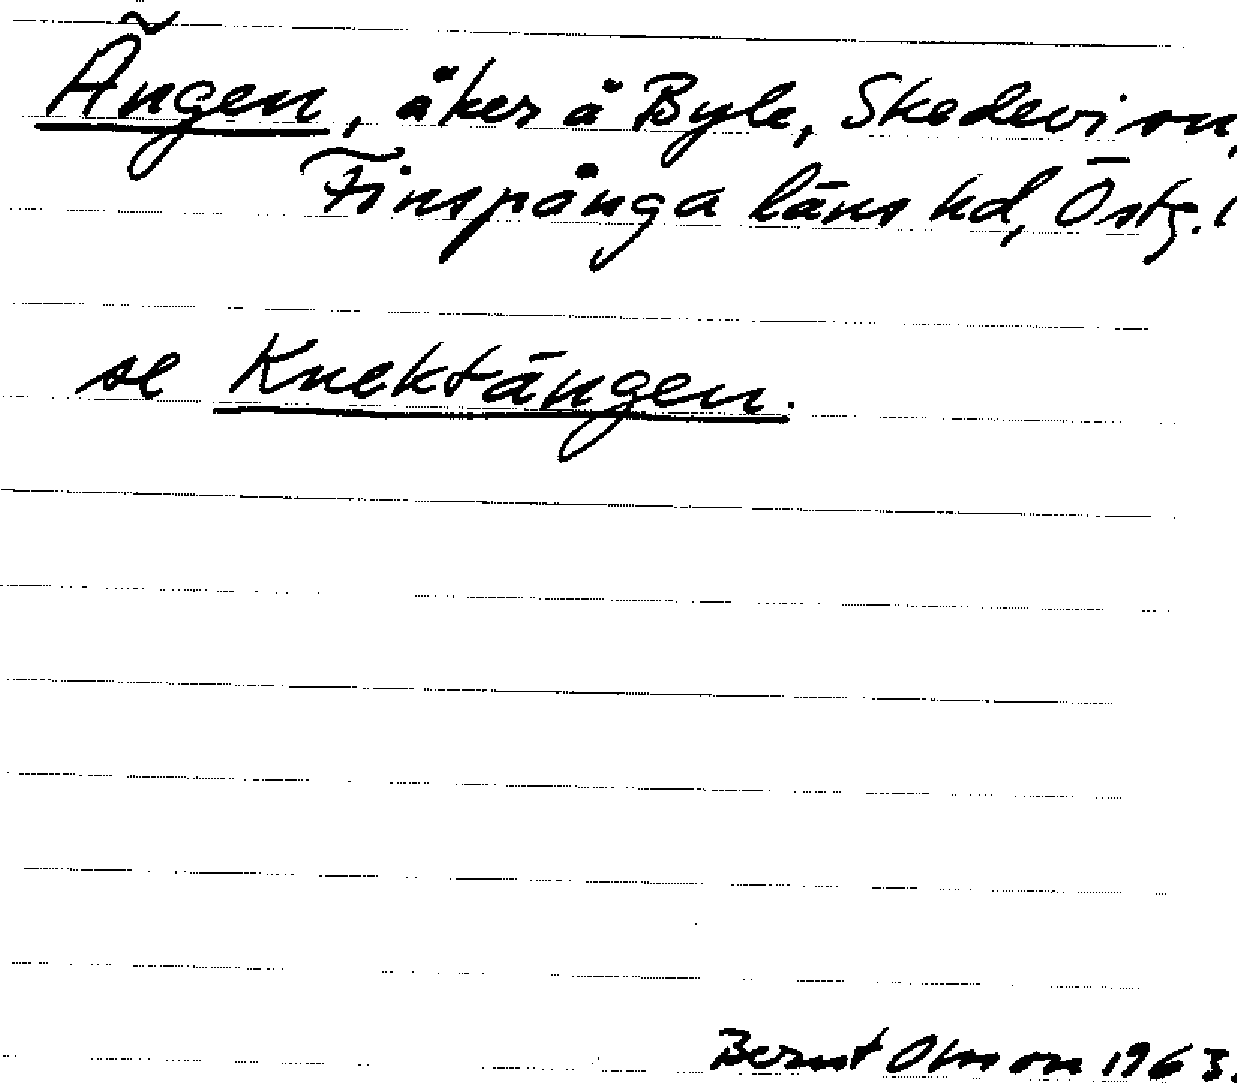 Ängen, åker å Byle, Skedevi sn,
Finspånga läns hd, Östg. l
se Knektängen.
Bernt Olsson 1963.